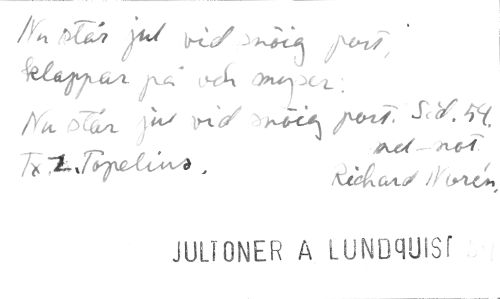 Nu står jul vid snöig port,
klappar på och myser:
Nu står jul vid snöig port. Sid. 54.
Tx. Z. Topelius.
Richard Norén.
JULTONER A LUNDQUIST